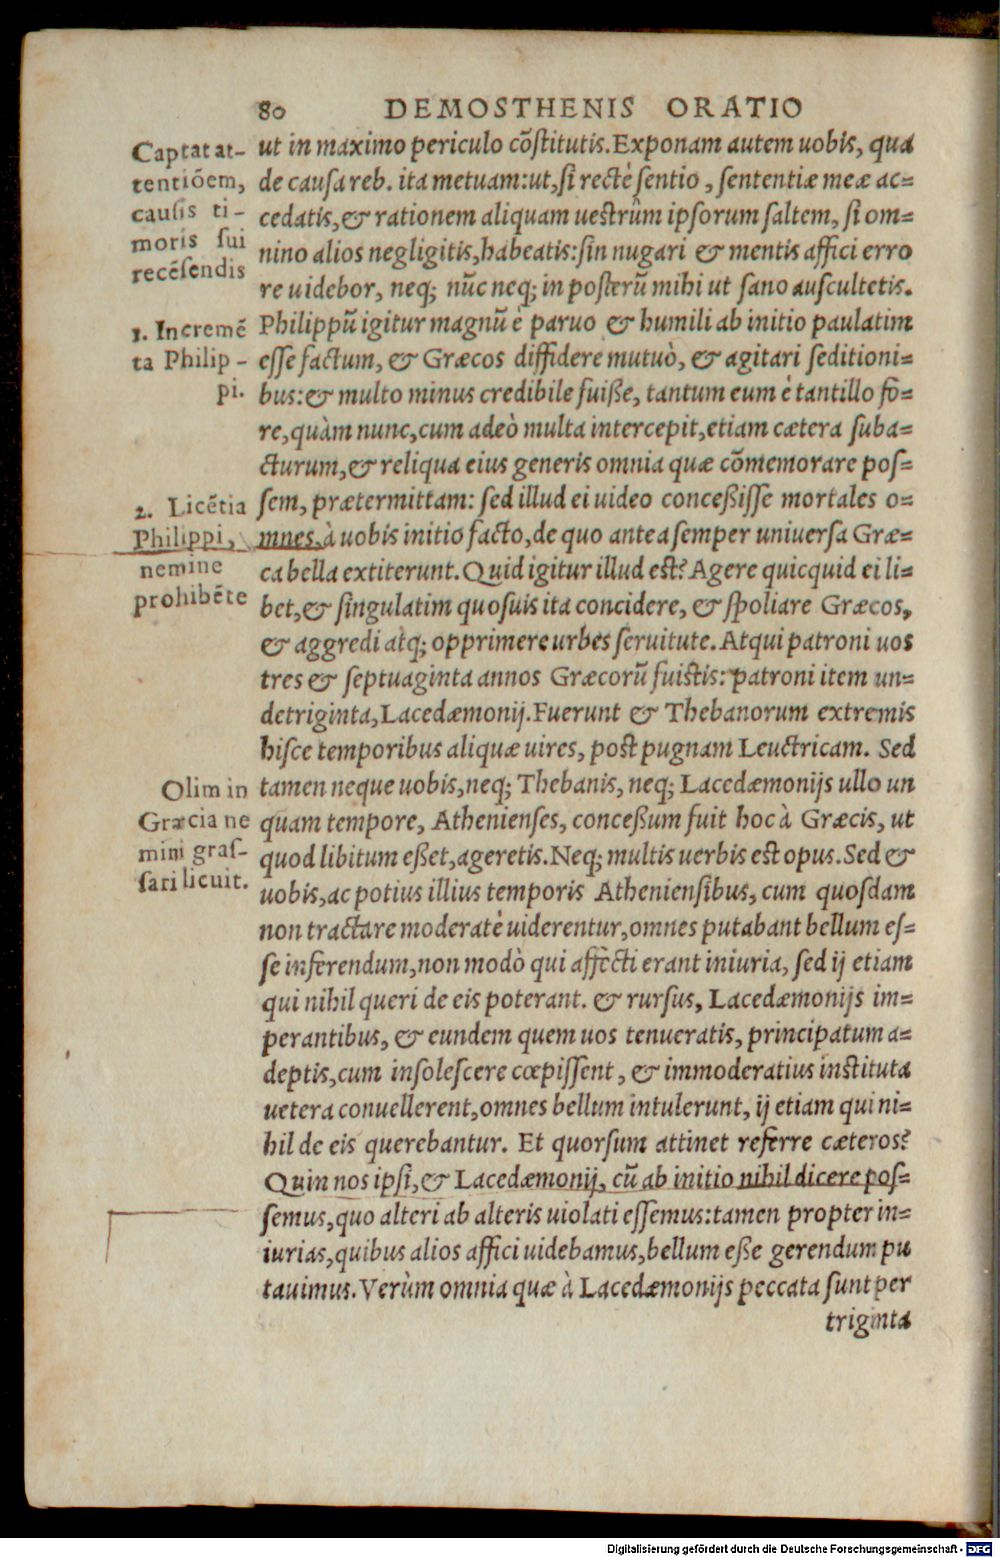 80 DEMOSTHENIS ORATIO
Captat at-
tentiõem,
causis ti-
moris sui
recẽsendis
ut in maximo periculo cõstitutis. Exponam autem uobis, qua
de causa reb. ita metuam: ut, si rectè sentio, sententiæ meæ ac=
cedatis, & rationem aliquam uestrûm ipsorum saltem, si om=
nino alios negligitis, habeatis: sin nugari & mentis affici erro
re uidebor, neq; nũc neq; in posterũ mihi ut sano auscultetis.
1. Incremẽ
ta Philip-
pi.
Philippũ igitur magnũ è paruo & humili ab initio paulatim
esse factum, & Græcos diffidere mutuò, & agitari seditioni=
bus: & multo minus credibile fuiße, tantum eum è tantillo fo=
re, quàm nunc, cum adeò multa intercepit, etiam cætera suba=
cturum, & reliqua eius generis omnia quæ cõmemorare pos=
2. Licẽtia
Philippi,
nemine
prohibẽte
sem, prætermittam: sed illud ei uideo conceßisse mortales o=
mnes, à uobis initio facto, de quo antea semper uniuersa Græ=
ca bella extiterunt. Quid igitur illud est? Agere quicquid ei li=
bet, & singulatim quosuis ita concidere, & spoliare Græcos,
& aggredi atq; opprimere urbes seruitute. Atqui patroni uos
tres & septuaginta annos Græcorũ fuistis: patroni item un=
detriginta, Lacedæmonij. Fuerunt & Thebanorum extremis
hisce temporibus aliquæ uires, post pugnam Leuctricam. Sed
Olim in
Græcia ne
mini gras-
sari licuit.
tamen neque uobis, neq; Thebanis, neq; Lacedæmonijs ullo un
quam tempore, Athenienses, conceßum fuit hoc à Græcis, ut
quod libitum eßet, ageretis. Neq; multis uerbis est opus. Sed &
uobis, ac potius illius temporis Atheniensibus, cum quosdam
non tractare moderatè uiderentur, omnes putabant bellum es=
se inferendum, non modò qui affecti erant iniuria, sed ij etiam
qui nihil queri de eis poterant. & rursus, Lacedæmonijs im=
perantibus, & eundem quem uos tenueratis, principatum a=
deptis, cum insolescere cœpissent, & immoderatius instituta
uetera conuellerent, omnes bellum intulerunt, ij etiam qui ni=
hil de eis querebantur. Et quorsum attinet referre cæteros?
Quin nos ipsi, & Lacedæmonij, cũ ab initio nihil dicere pos=
semus, quo alteri ab alteris uiolati essemus: tamen propter in=
iurias, quibus alios affici uidebamus, bellum eße gerendum pu
tauimus. Verùm omnia quæ à Lacedæmonijs peccata sunt per
triginta
Digitalisierung gefördert durch die Deutsche Forschungsgemeinschaft - DFG